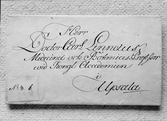 Herr
Doctor Carl Linnæus
Medicinæ och Botanices Professor
wid Kongl. Academien
Upsala